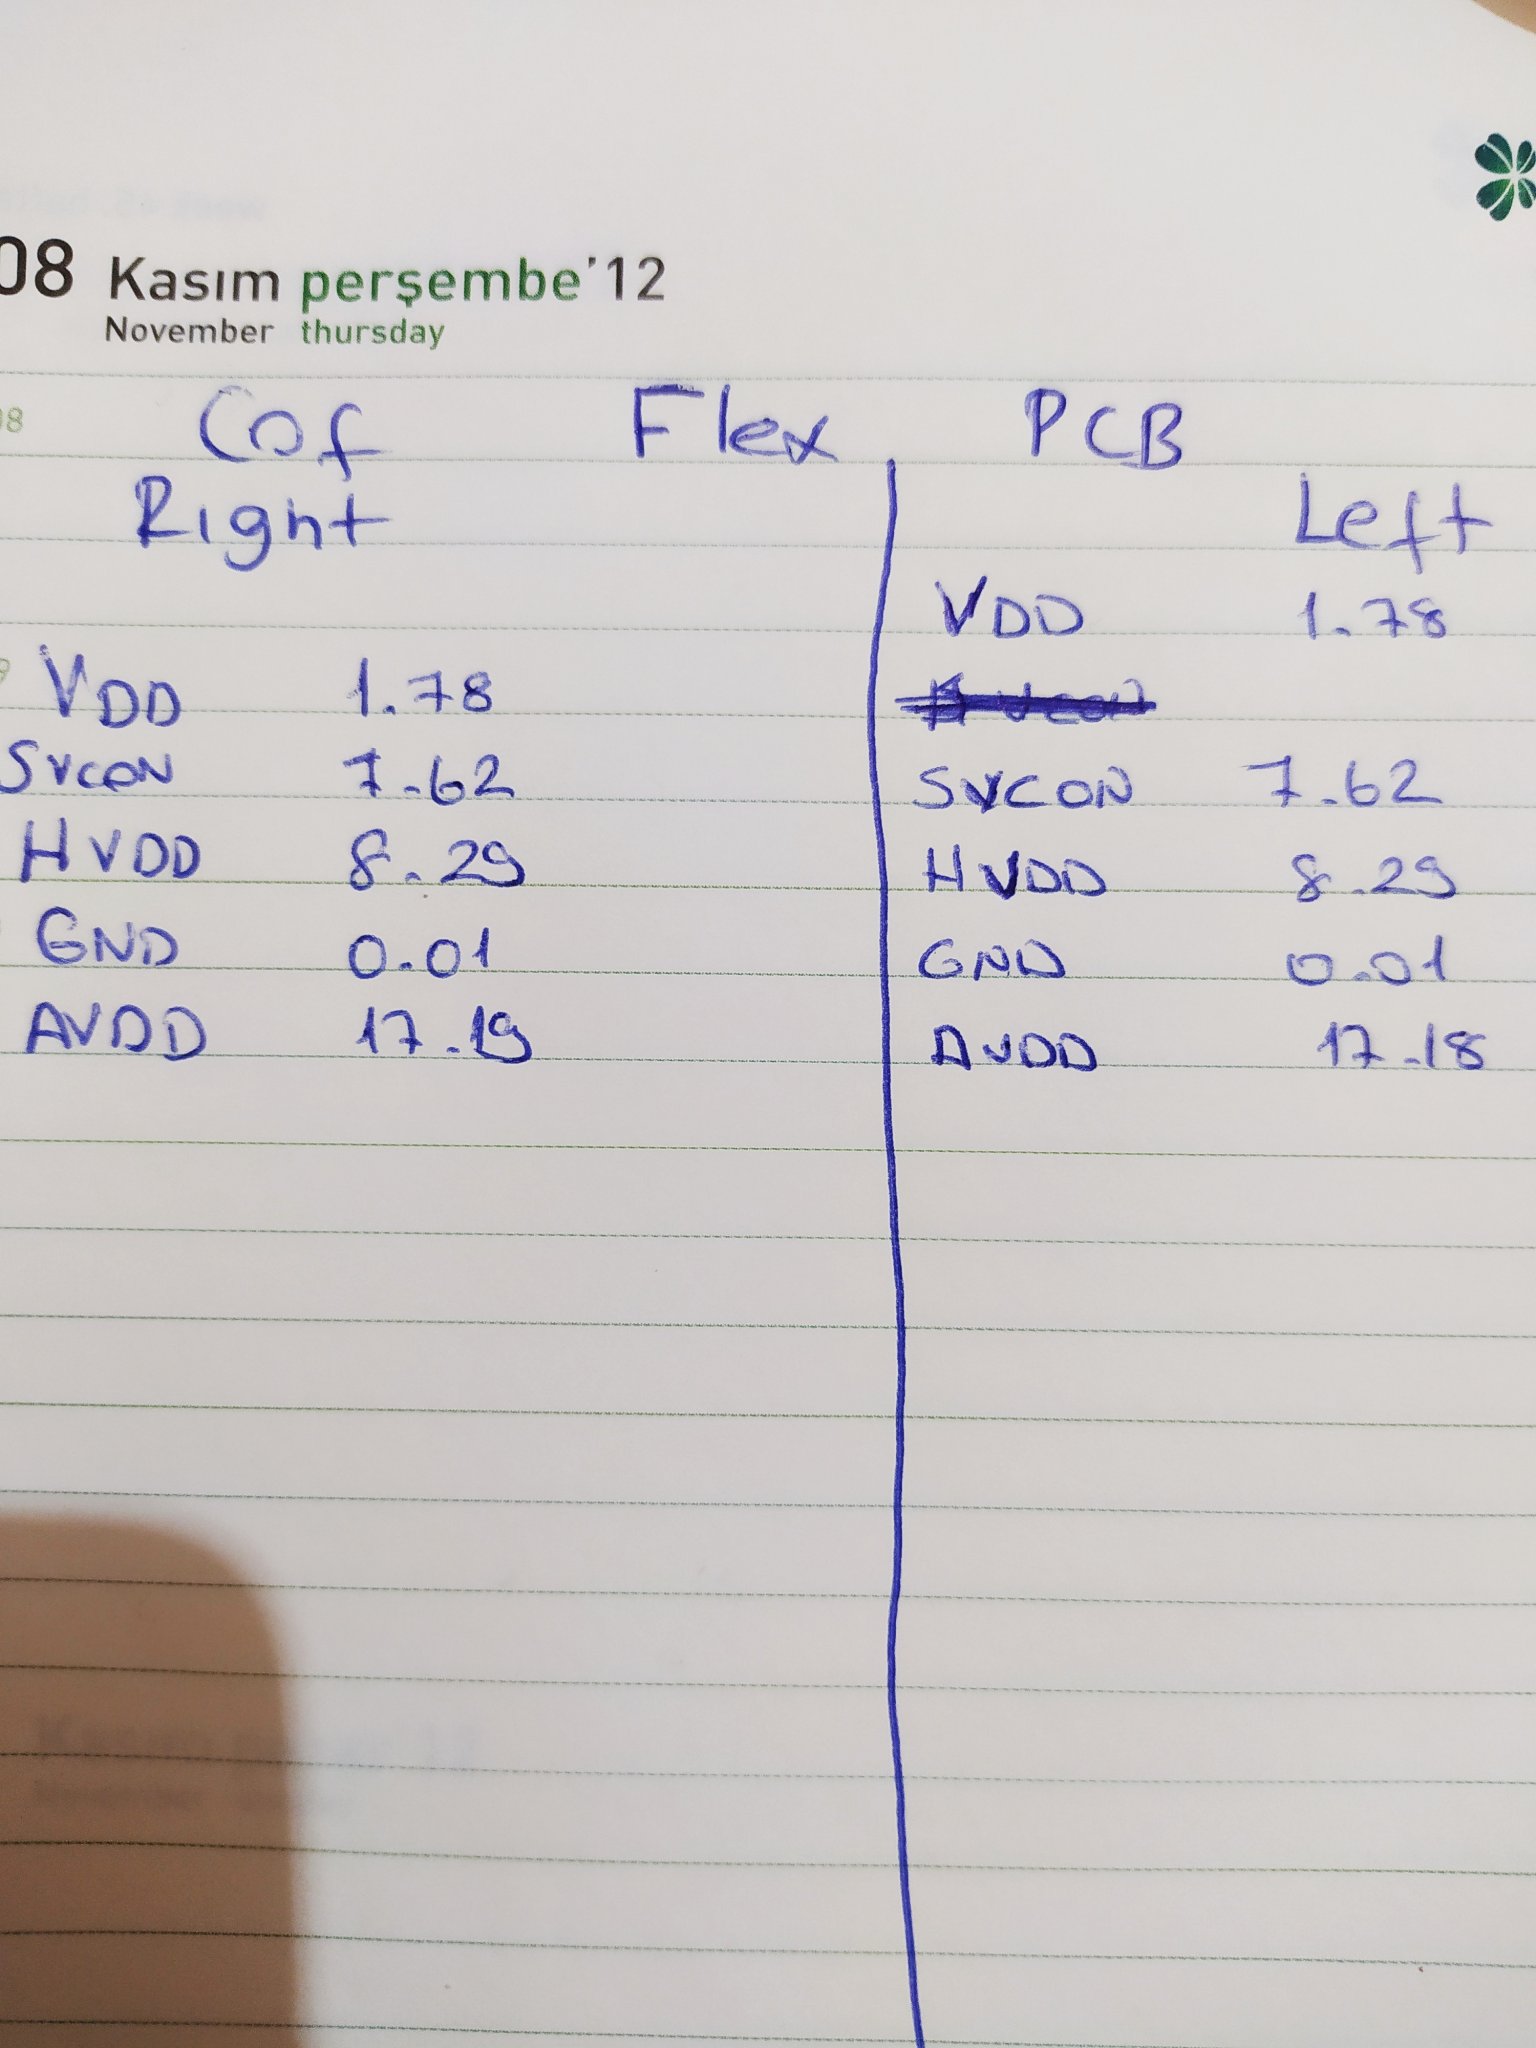 08 Kasım perşembe'12
November thursday
08
Cof Flex PCB
Right
Left
VDD 1.78
SVCON 7.62
HVDD 8.29
GND 0.01
AVDD 17.19
VDD 1.78
SVCON 7.62
HVDD 8.29
GND 0.01
AVDD 17.18